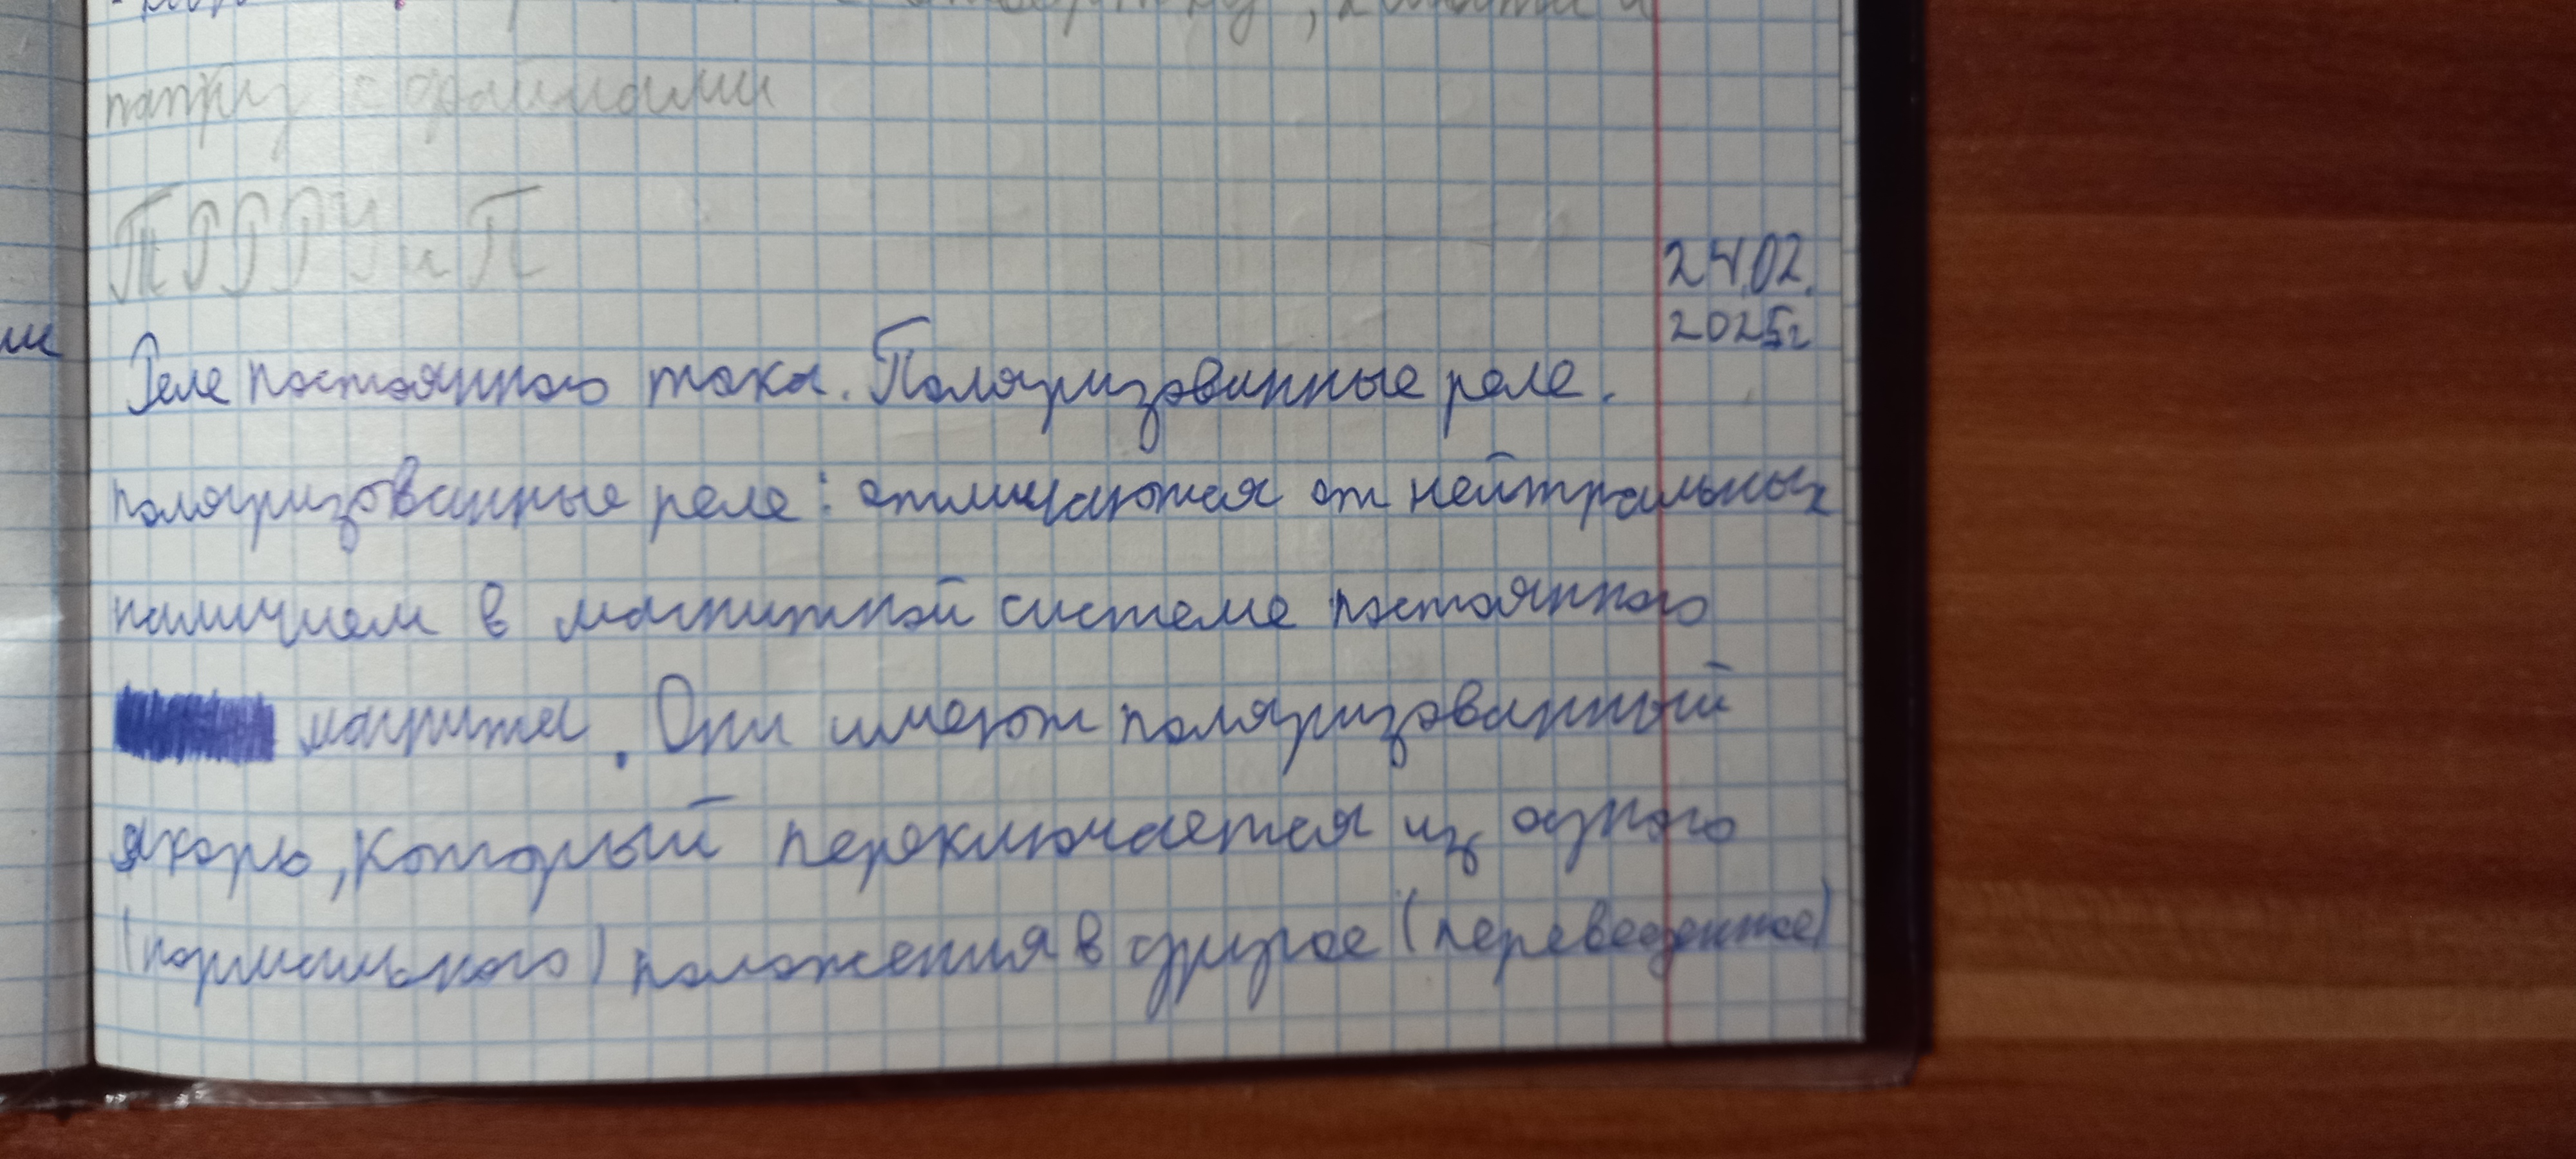 папку с файлами
24.02.
2025г
Реле постоянного тока. Поляризованные реле.
поляризованные реле: отличаются от нейтральных
наличием в магнитной системе постоянного
магнита. Они имеют поляризованный
якорь, который переключается из одного
(нормального) положения в другое (переведенное)